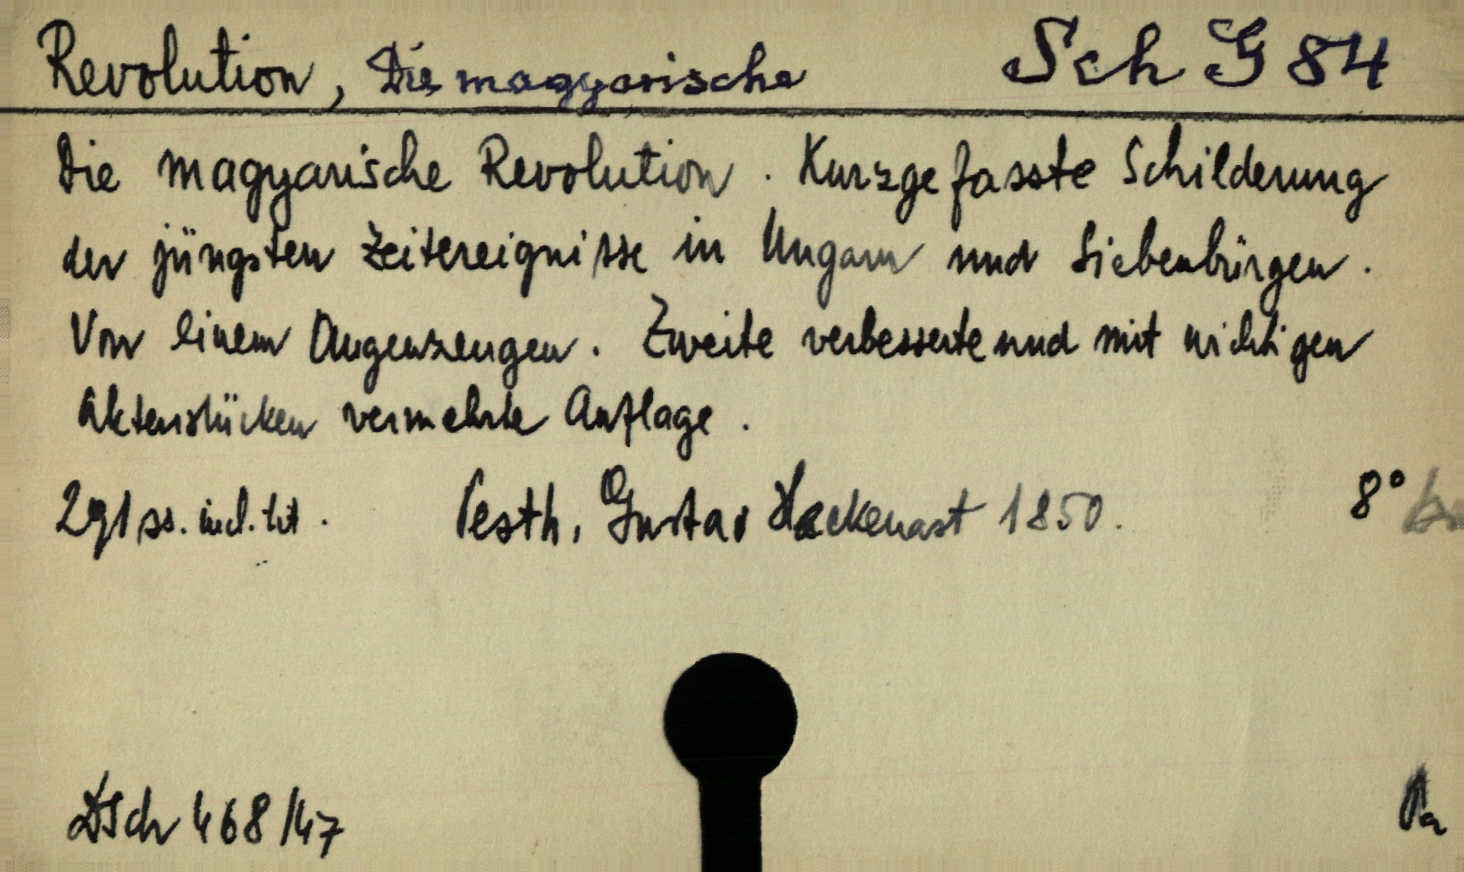 Revolution, Die magyarische Sch G 84
Die magyarische Revolution. Kurzgefasste Schilderung
der jüngsten Zeitereignisse in Ungarn und Siebenbürgen.
Von einem Augenzeugen. Zweite verbesserte und mit wichtigen
Aktenstücken vermehrte Auflage.
291 ss. incl. tit. Pesth, Gustav Heckenast 1850. 8°
DSch 468/47